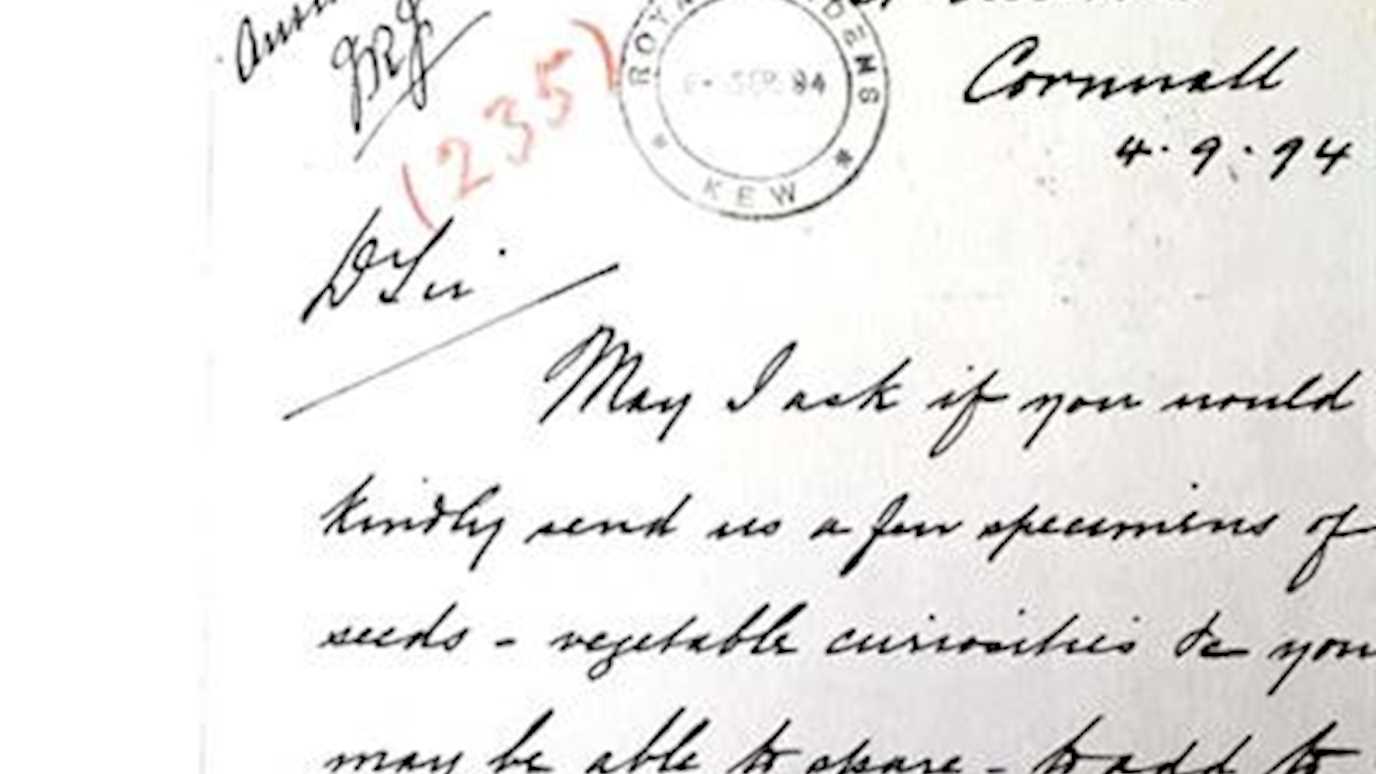 JRJ
(235)
ROYAL GARDENS
SEP. 94
KEW
Cornwall
4.9.94
D Sir
May I ask if you would
kindly send us a few specimens of
seeds - vegetable curiosities &c you
may be able to spare - to add to